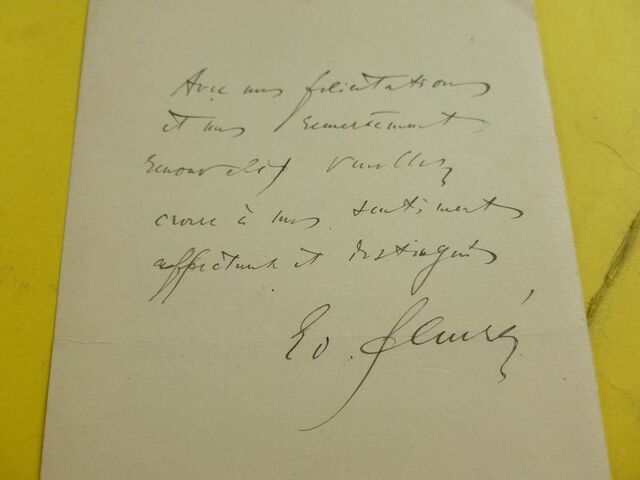 Avec mes félicitations
et mes remerciements
renouvelés veuillez
croire à mes sentiments
affectueux et distingués
Ed.